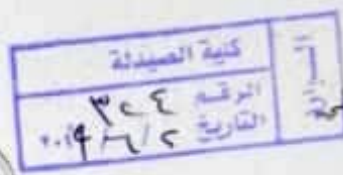 كلية الصيدلة
الرقم ٣٢٤
التاريخ ٢/٦/٢٠١٩